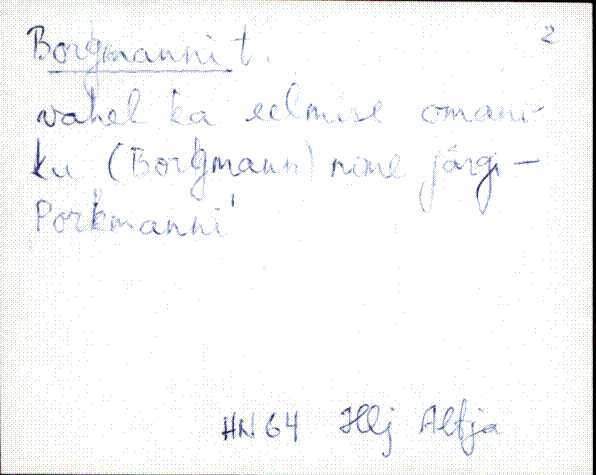 Borgmanni t. 2
vahel ka eelmise omani-
ku (Borgmann) nime järgi –
Porkmanni'
HN 64 Hlj Altja